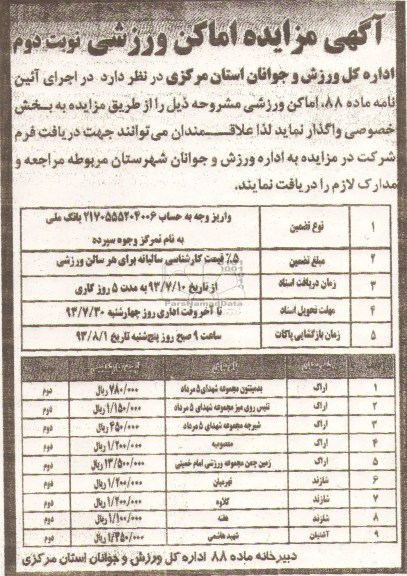 آگهی مزایده اماکن ورزشی نوبت دوم
اداره کل ورزش و جوانان استان مرکزی در نظر دارد در اجرای آئین
نامه ماده ۸۸، اماکن ورزشی مشروحه ذیل را از طریق مزایده به بخش
خصوصی واگذار نماید لذا علاقــمندان می توانند جهت دریافت فرم
شرکت در مزایده به اداره ورزش و جوانان شهرستان مربوطه مراجعه و
مدارک لازم را دریافت نمایند.
۱ نوع تضمین واریز وجه به حساب ۲۱۷۰۵۵۵۲۰۴۰۰۶ بانک ملی
به نام تمرکز وجوه سپرده
۲ مبلغ تضمین ۵٪ قیمت کارشناسی سالیانه برای هر سالن ورزشی
۳ زمان دریافت اسناد از تاریخ ۹۳/۷/۱۰ به مدت ۵ روز کاری
۴ مهلت تحویل اسناد تا آخر وقت اداری روز چهارشنبه ۹۳/۷/۳۰
۵ زمان بازگشایی پاکات ساعت ۹ صبح روز پنج شنبه تاریخ ۹۳/۸/۱
ParsNamadData
۱ اراک بدمینتون مجموعه شهدای ۵ مرداد ۷۸۰/۰۰۰ ریال دوم
۲ اراک تنیس روی میز مجموعه شهدای ۵ مرداد ۱/۱۵۰/۰۰۰ ریال دوم
۳ اراک شیرجه مجموعه شهدای ۵ مرداد ۴۵۰/۰۰۰ ریال دوم
۴ اراک معصومیه ۱/۲۰۰/۰۰۰ ریال دوم
۵ اراک زمین چمن مجموعه ورزشی امام خمینی ۱۳/۵۰۰/۰۰۰ ریال دوم
۶ شازند قورمیان ۱/۲۰۰/۰۰۰ ریال دوم
۷ شازند کلاوه ۱/۲۰۰/۰۰۰ ریال دوم
۸ شازند هفته ۱/۱۰۰/۰۰۰ ریال دوم
۹ آشتیان شهید هاشمی ۱/۳۵۰/۰۰۰ ریال دوم
دبیرخانه ماده ۸۸ اداره کل ورزش و جوانان استان مرکزی